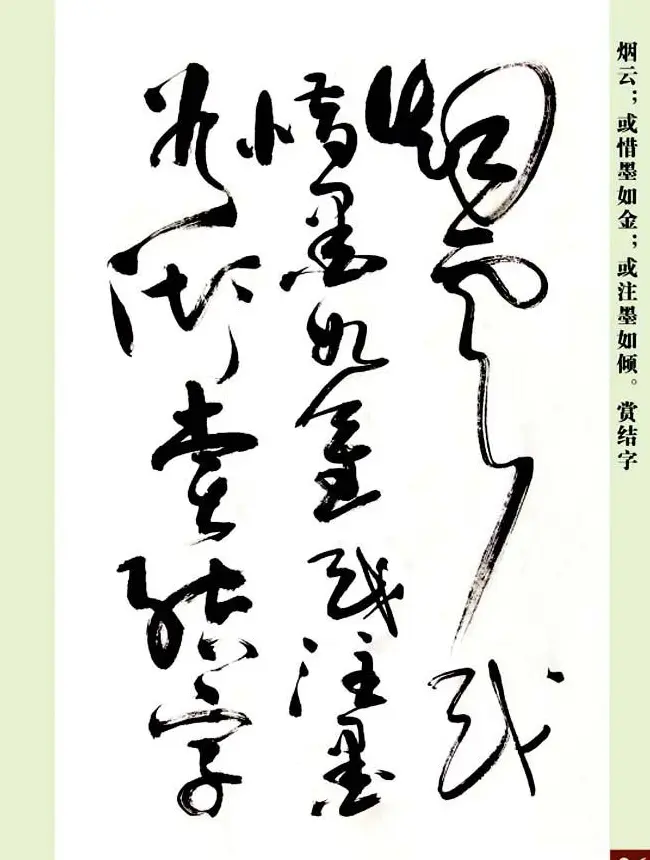 烟云；或惜墨如金；或注墨如倾。赏结字
烟云或
惜墨如金或注墨
如倾赏结字